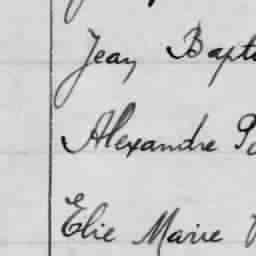 Jean Bapt
Alexandre
Elie Marie